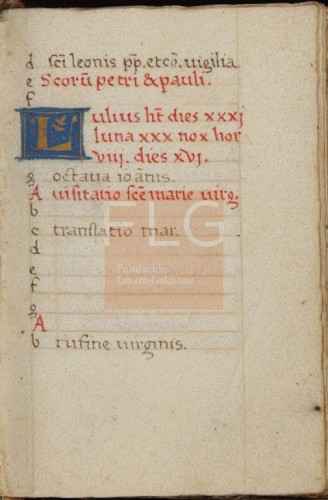 d sc̃i leonis pp̃. et cõ. uigilia
e Scorũ petri & pauli.
f
Lulius ht̃ dies xxxi
luna xxx nox hor
viii. dies xvi.
g octaua ioãnis.
A uisitatio sc̃e marie uirg.
b
c translatio mar.
d
e
f
g
A
b rufine uirginis.
FLG
Fundación
Lázaro Galdiano